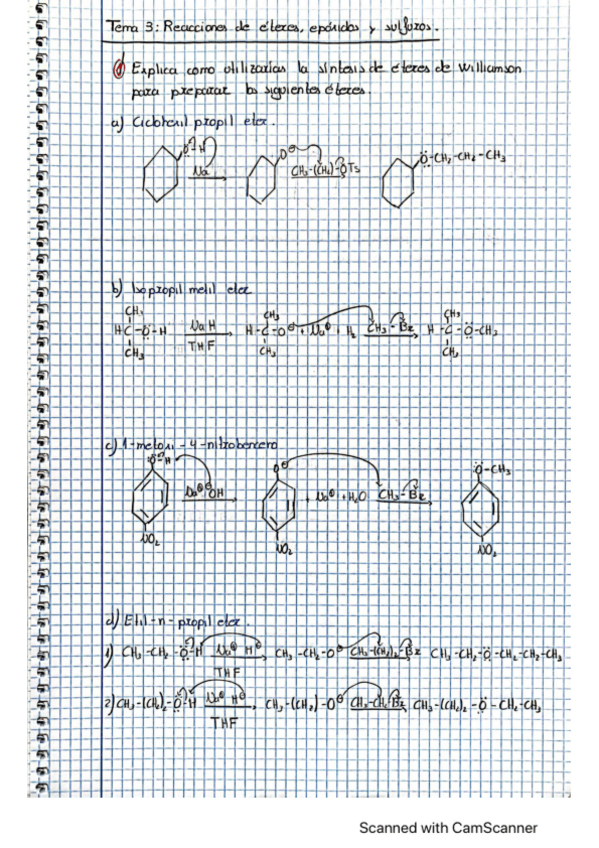 Tema 3: Reacciones de éteres, epóxidos y sulfuros.
① Explica como utilizarías la síntesis de éteres de Williamson
para preparar los siguientes éteres.
a) Ciclohexil propil eter.
Ö-H O⊖ Ö-CH₂-CH₂-CH₃
Na CH₃-(CH₂)-OTs
b) Isopropil metil eter
CH₃ CH₃ CH₃
HC-Ö-H NaH H-C-O⊖ + Na⊕ + H₂ CH₃-Br H-C-Ö-CH₃
CH₃ THF CH₃ CH₃
c) 1-metoxi-4-nitrobenceno
Ö-H O⊖ Ö-CH₃
Na⊕ ⊖OH + Na⊕ + H₂O CH₃-Br
NO₂ NO₂ NO₂
d) Etil-n-propil eter.
1) CH₃-CH₂-Ö-H Na⊕ H⊖ CH₃-CH₂-O⊖ CH₃-(CH₂)₂-Br CH₃-CH₂-Ö-CH₂-CH₂-CH₃
THF
2) CH₃-(CH₂)₂-Ö-H Na⊕ H⊖ CH₃-(CH₂)-O⊖ CH₃-CH₂Br CH₃-(CH₂)₂-Ö-CH₂-CH₃
THF
Scanned with CamScanner